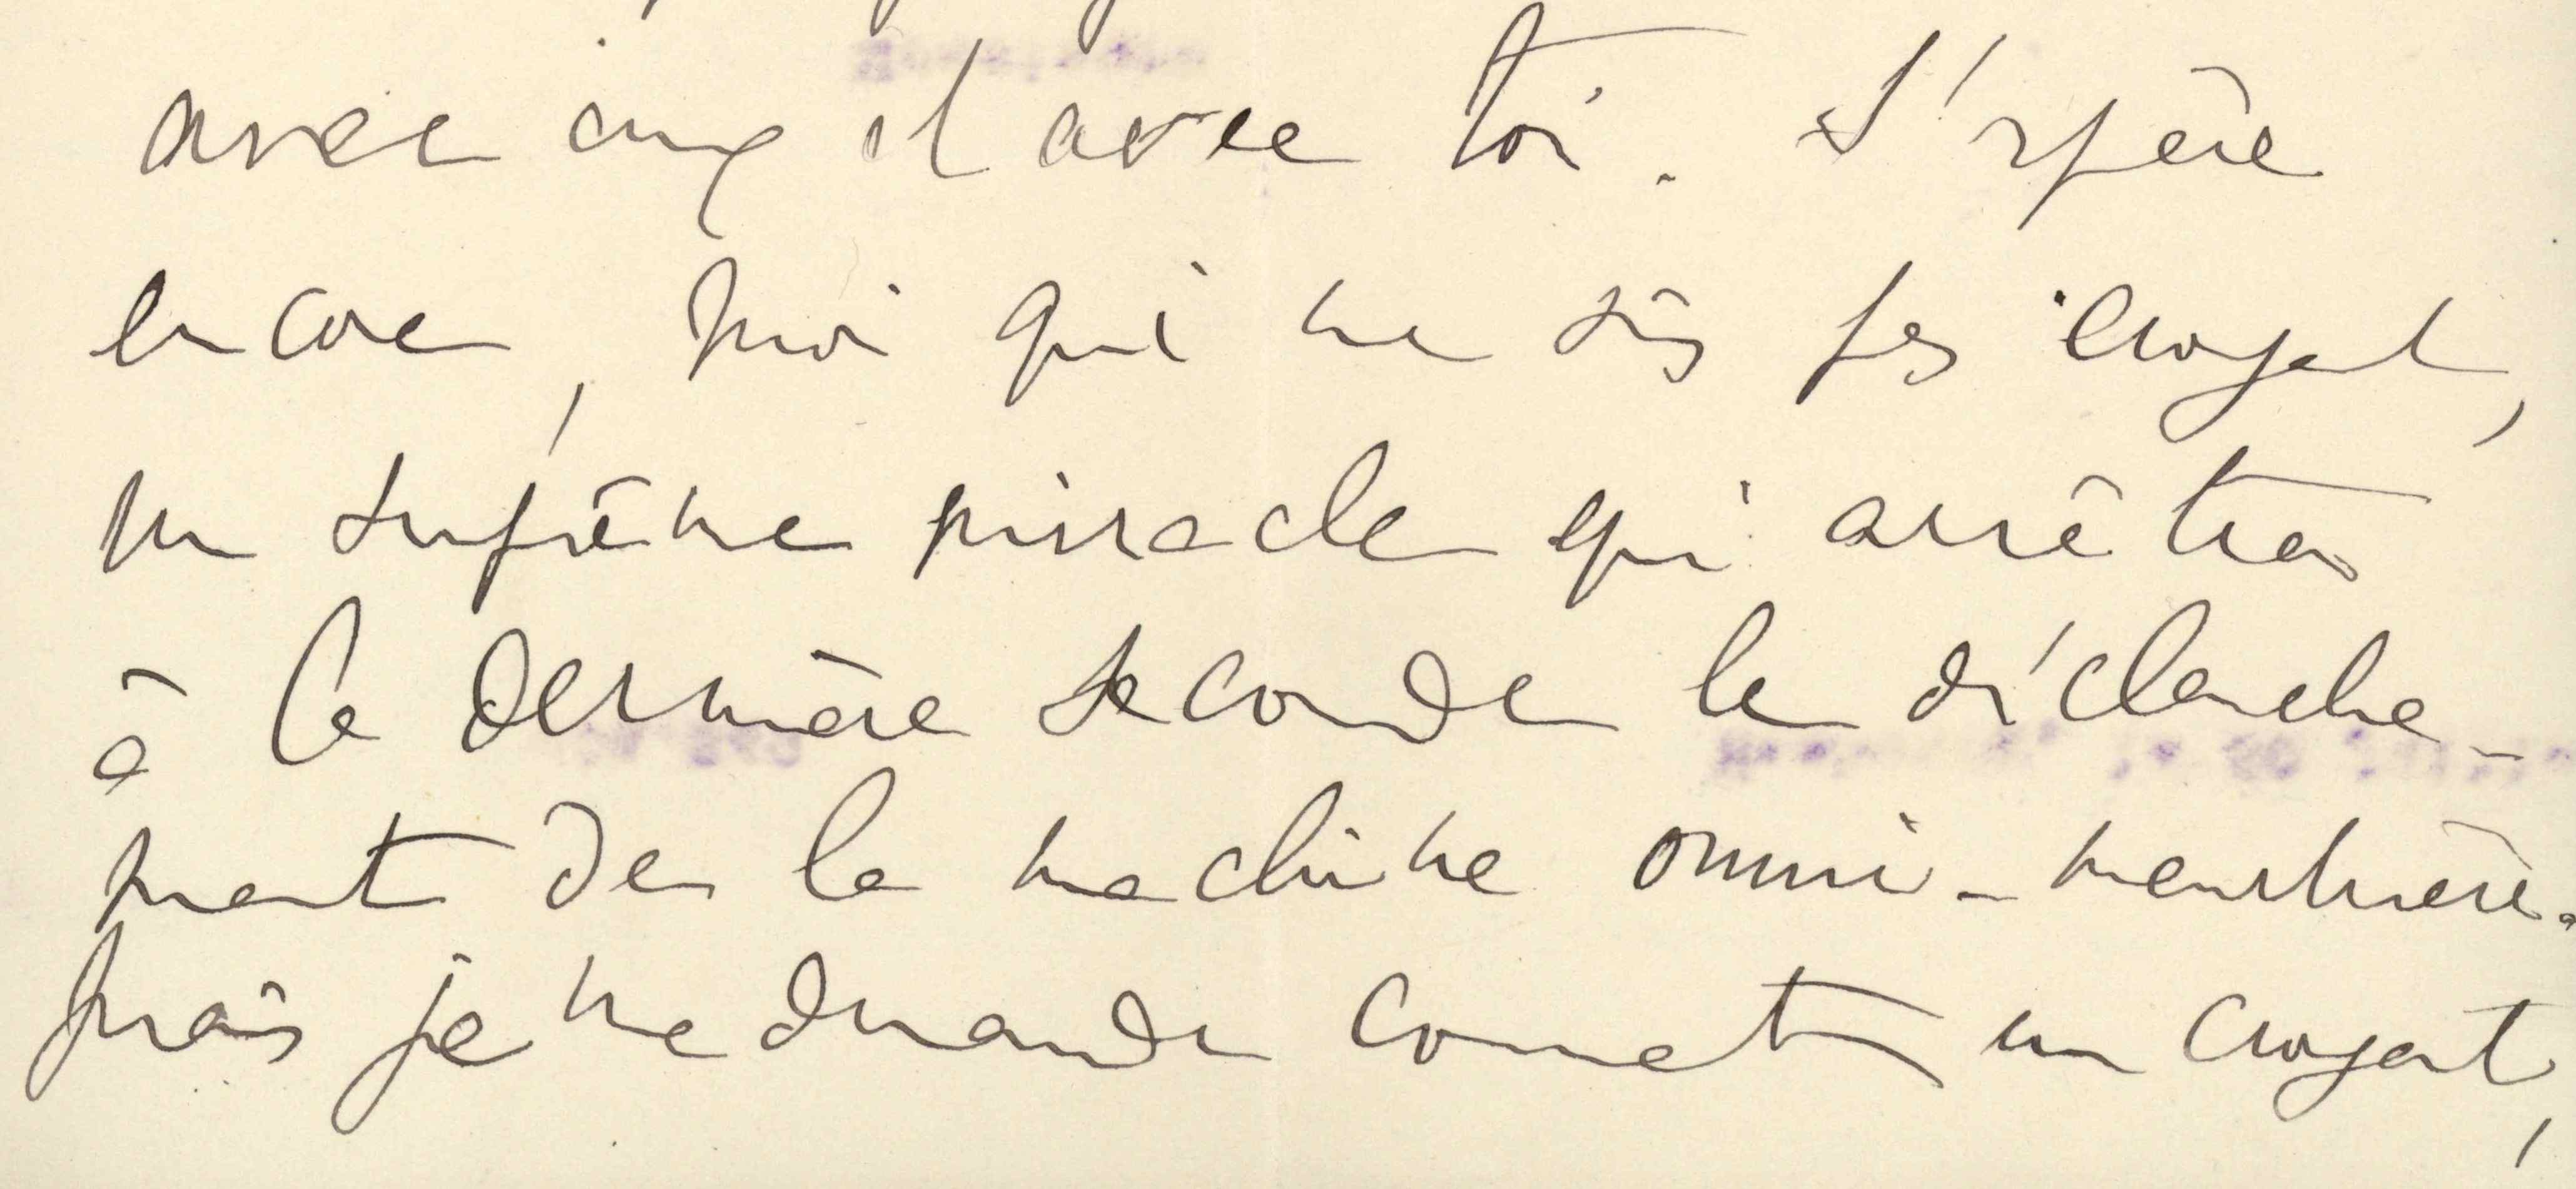 avec eux et avec toi. J'espère
encore, moi qui ne suis pas croyant,
un suprême miracle qui arrêtera
à la dernière seconde le déclenche-
ment de la machine omni-meurtrière.
Mais je me demande comment un croyant,